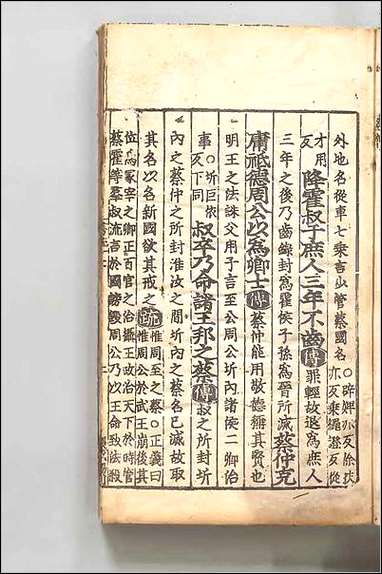 外地名從車七乘言少管蔡國名○辟婢亦反徐扶亦反乘繩證反從
才用反降霍叔于庶人三年不齒傳罪輕故退爲庶人
三年之後乃齒録封爲霍侯子孫爲晉所滅蔡仲克
庸祗德周公以爲卿士傳蔡仲能用敬德稱其賢也
明王之法誅父用子言至公周公圻內諸侯二卿治
事○圻巨依反下同叔卒乃命諸王邦之蔡傳叔之所封圻
內之蔡仲之所封淮汝之閒圻內之蔡名已滅故取
其名以名新國欲其戒之疏惟周至之蔡○正義曰惟周公於武王崩後其
位爲冢宰之卿正百官之治攝王政治天下於時管
蔡霍等羣叔流言於國謗毀周公乃以王命致法殺